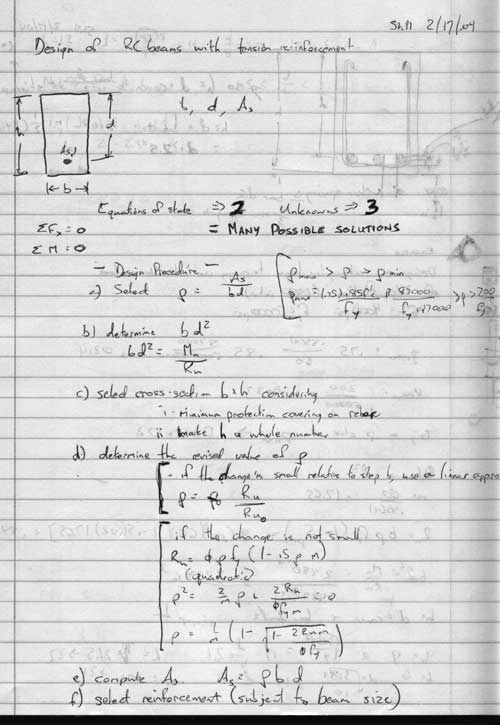 2/17/04
Design of RC beams with tension reinforcement
b, d, As
h
d
As
b
Equations of state ⇒ 2 Unknowns ⇒ 3
ΣFx = 0 = MANY POSSIBLE SOLUTIONS
ΣM = 0
- Design Procedure -
a) Select ρ = As/bd
ρmax > ρ > ρmin
b) determine bd²
bd² = Mu/Ru
c) select cross-section b×h considering
i - minimum protection covering on rebar
ii make h a whole number
d) determine the revised value of ρ
- if the change is small relative to step b, use a linear appro
ρ = Ru/Ru₀
if the change is not small
Ru = φρfy(1-.5ρm)
(quadratic)
ρ² = 2/m ρ + 2Ru/φfym = 0
ρ = 1/m (1-√(1-2Rum/φfy))
e) compute As As = ρbd
f) select reinforcement (subject to beam size)